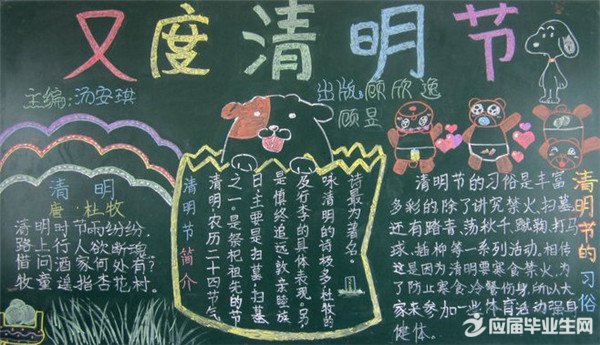 又度清明节
主编:汤安琪
出版:顾欣逸
顾昱
清明
唐·杜牧
清明时节雨纷纷,
路上行人欲断魂。
借问酒家何处有?
牧童遥指杏花村。
清明节简介
清明,农历二十四节气
之一。是祭祀祖先的节
日主要是扫墓,扫墓
是慎终追远,敦亲睦族
及行孝的具体表现。另
咏清明的诗极多杜牧的
诗最为著名。
清明节的习俗
清明节的习俗是丰富
多彩的除了讲究禁火、扫墓
还有踏青、荡秋千、蹴鞠、打马
球、插柳等一系列活动。相传
这是因为清明要寒食禁火,为
了防止寒食冷餐伤身,所以大
家来参加一些体育活动强身
健体。
应届毕业生网